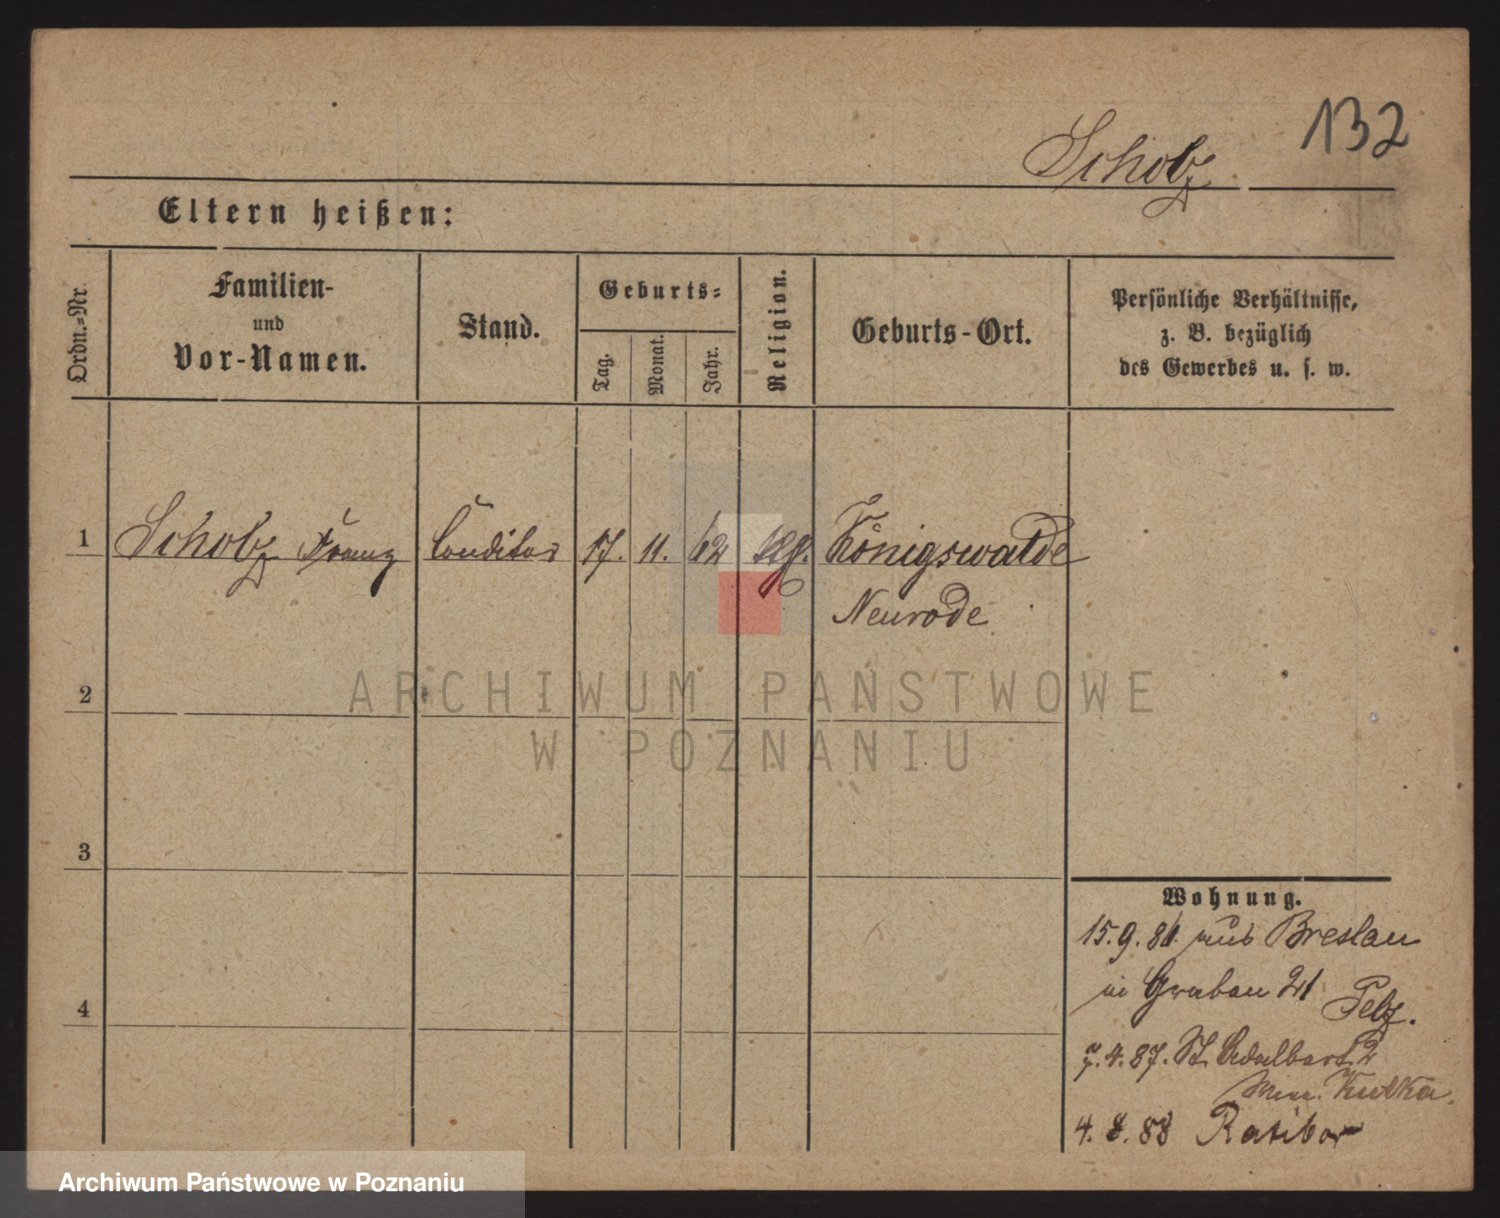 132
Scholz
Eltern heißen:
Ordn.-Nr.
Familien-
und
Vor-Namen.
Stand.
Geburts-
Tag.
Monat.
Jahr.
Religion.
Geburts-Ort.
Persönliche Verhältnisse,
z. B. bezüglich
des Gewerbes u. s. w.
1 Scholz Franz Conditor 17. 11. 62 Königswalde
Neurode
2
ARCHIWUM PAŃSTWOWE
W POZNANIU
3
4
Wohnung.
15. 9. 86. aus Breslau
in Graben 21 Pelz.
7. 4. 87. St. Adalbert 2
Kutka.
4. 8. 88 Ratibor
Archiwum Państwowe w Poznaniu